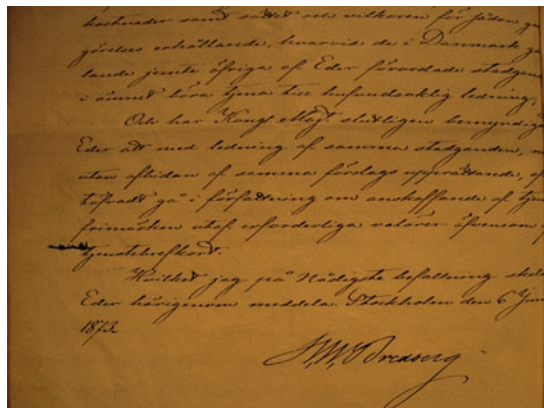 kostnader samt sättet och vilkoren för sådan
görelses erhållande, hvarvid de i Danmark
lande jemte öfriga af Eder förordade
i ämnet böra tjena till hufvudsaklig ledning,
Och har Kongl Majt slutligen
Eder att med ledning af samma stadganden,
utan afbidan af samma förslags upprättande,
gå i författning om anskaffande af
frimärken utaf erforderliga valörer äfvensom
tjenstebrefkort.
Hvilket jag på Nådigste befallning
Eder härigenom meddela. Stockholm den 6